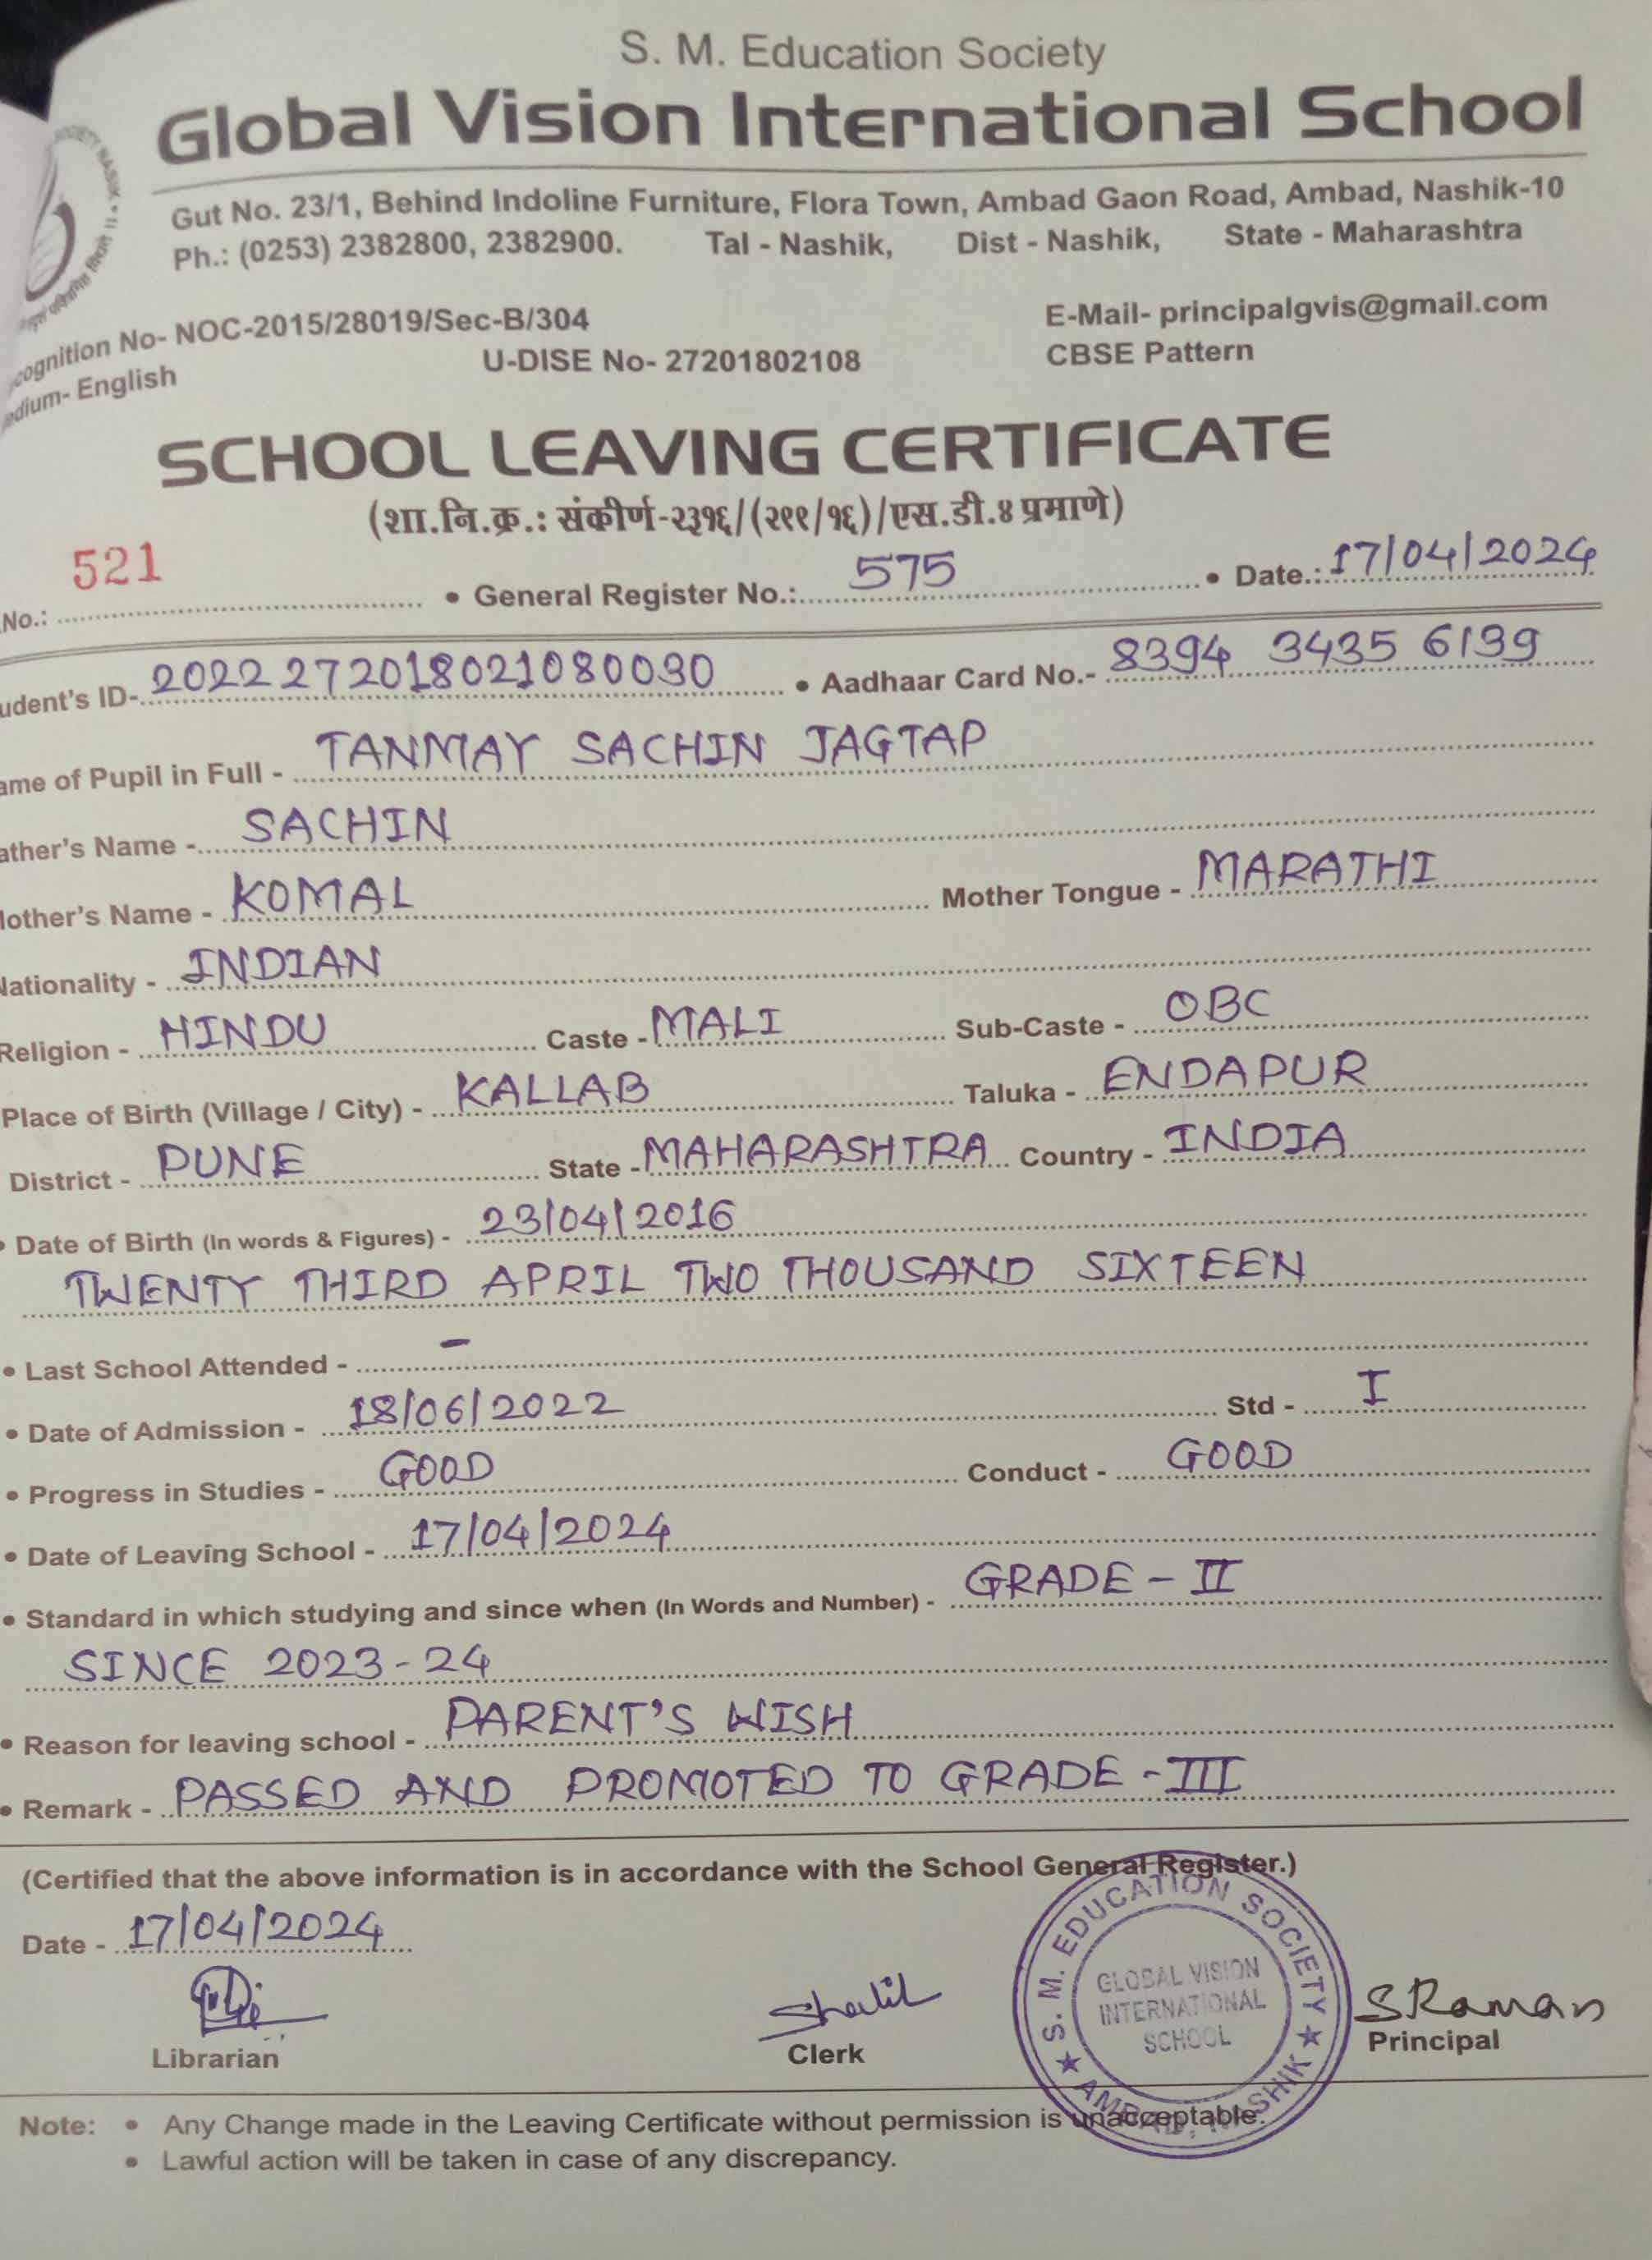 S. M. Education Society
Global Vision International School
Gut No. 23/1, Behind Indoline Furniture, Flora Town, Ambad Gaon Road, Ambad, Nashik-10
Ph.: (0253) 2382800, 2382900. Tal - Nashik, Dist - Nashik, State - Maharashtra
cognition No- NOC-2015/28019/Sec-B/304 E-Mail- principalgvis@gmail.com
edium- English U-DISE No- 27201802108 CBSE Pattern
SCHOOL LEAVING CERTIFICATE
(शा.नि.क्र.: संकीर्ण-२३१६/(२९१/१६)/एस.डी.४ प्रमाणे)
No.: 521 • General Register No.: 575 • Date.: 17/04/2024
udent's ID- 2022272018021080030 • Aadhaar Card No.- 8394 3435 6199
ame of Pupil in Full - TANMAY SACHIN JAGTAP
ather's Name - SACHIN
lother's Name - KOMAL Mother Tongue - MARATHI
Nationality - INDIAN
Religion - HINDU Caste - MALI Sub-Caste - OBC
Place of Birth (Village / City) - KALLAB Taluka - ENDAPUR
District - PUNE State - MAHARASHTRA Country - INDIA
• Date of Birth (In words & Figures) - 23/04/2016
TWENTY THIRD APRIL TWO THOUSAND SIXTEEN
• Last School Attended - -
• Date of Admission - 18/06/2022 Std - I
• Progress in Studies - GOOD Conduct - GOOD
• Date of Leaving School - 17/04/2024
• Standard in which studying and since when (In Words and Number) - GRADE - II
SINCE 2023-24
• Reason for leaving school - PARENT'S WISH
• Remark - PASSED AND PROMOTED TO GRADE - III
(Certified that the above information is in accordance with the School General Register.)
Date - 17/04/2024
S. M. EDUCATION SOCIETY
★ AMBAD, NASHIK ★
GLOBAL VISION
INTERNATIONAL
SCHOOL
SRaman
Librarian Clerk Principal
Note: • Any Change made in the Leaving Certificate without permission is unacceptable.
• Lawful action will be taken in case of any discrepancy.